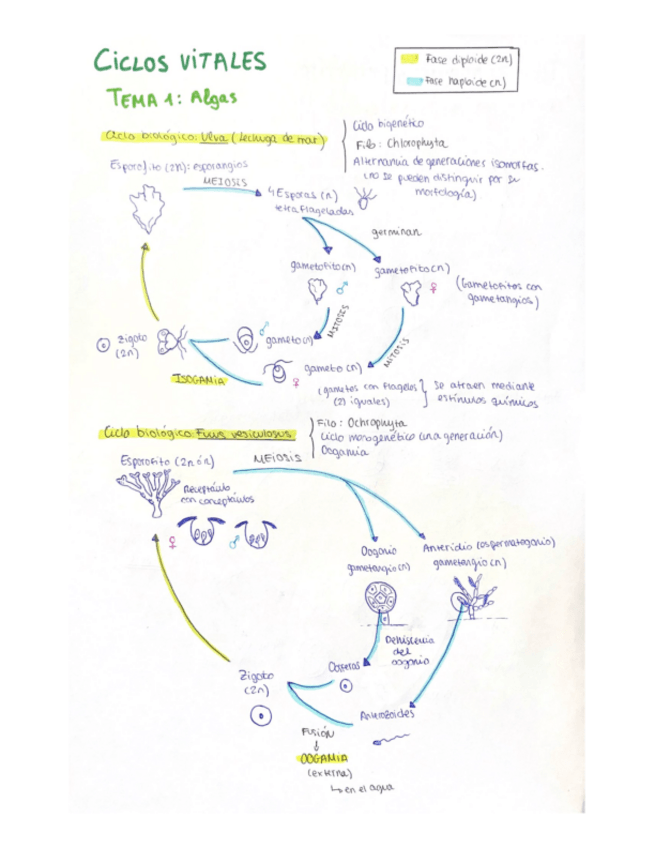 CICLOS VITALES
TEMA 1: Algas
Fase diploide (2n)
Fase haploide (n)
Ciclo biológico: Ulva (lechuga de mar)
Ciclo bigenético
Filo: Chlorophyta
Alternancia de generaciones isomorfas.
(no se pueden distinguir por su
morfología)
Esporofito (2n): esporangios
MEIOSIS
4 Esporas (n)
tetraflageladas
germinan
gametofito (n) ♂
gametofito (n) ♀
(Gametofitos con
gametangios)
MITOSIS
MITOSIS
Zigoto
(2n)
♂ gameto (n)
gameto (n)
♀
ISOGAMIA
(gametos con flagelos
(2) iguales)
Se atraen mediante
estímulos químicos
Ciclo biológico: Fucus vesiculosus
Filo: Ochrophyta
Ciclo monogenético (una generación)
Oogamia
Esporofito (2n ó n)
MEIOSIS
Receptáculo
con conceptáculos
♀ ♂
Oogonio
gametangio (n)
Anteridio (espermatogonio)
gametangio (n)
Dehiscencia
del
oogonio
Oosferas
Zigoto
(2n)
Anterozoides
FUSIÓN
OOGAMIA
(externa)
↳ en el agua